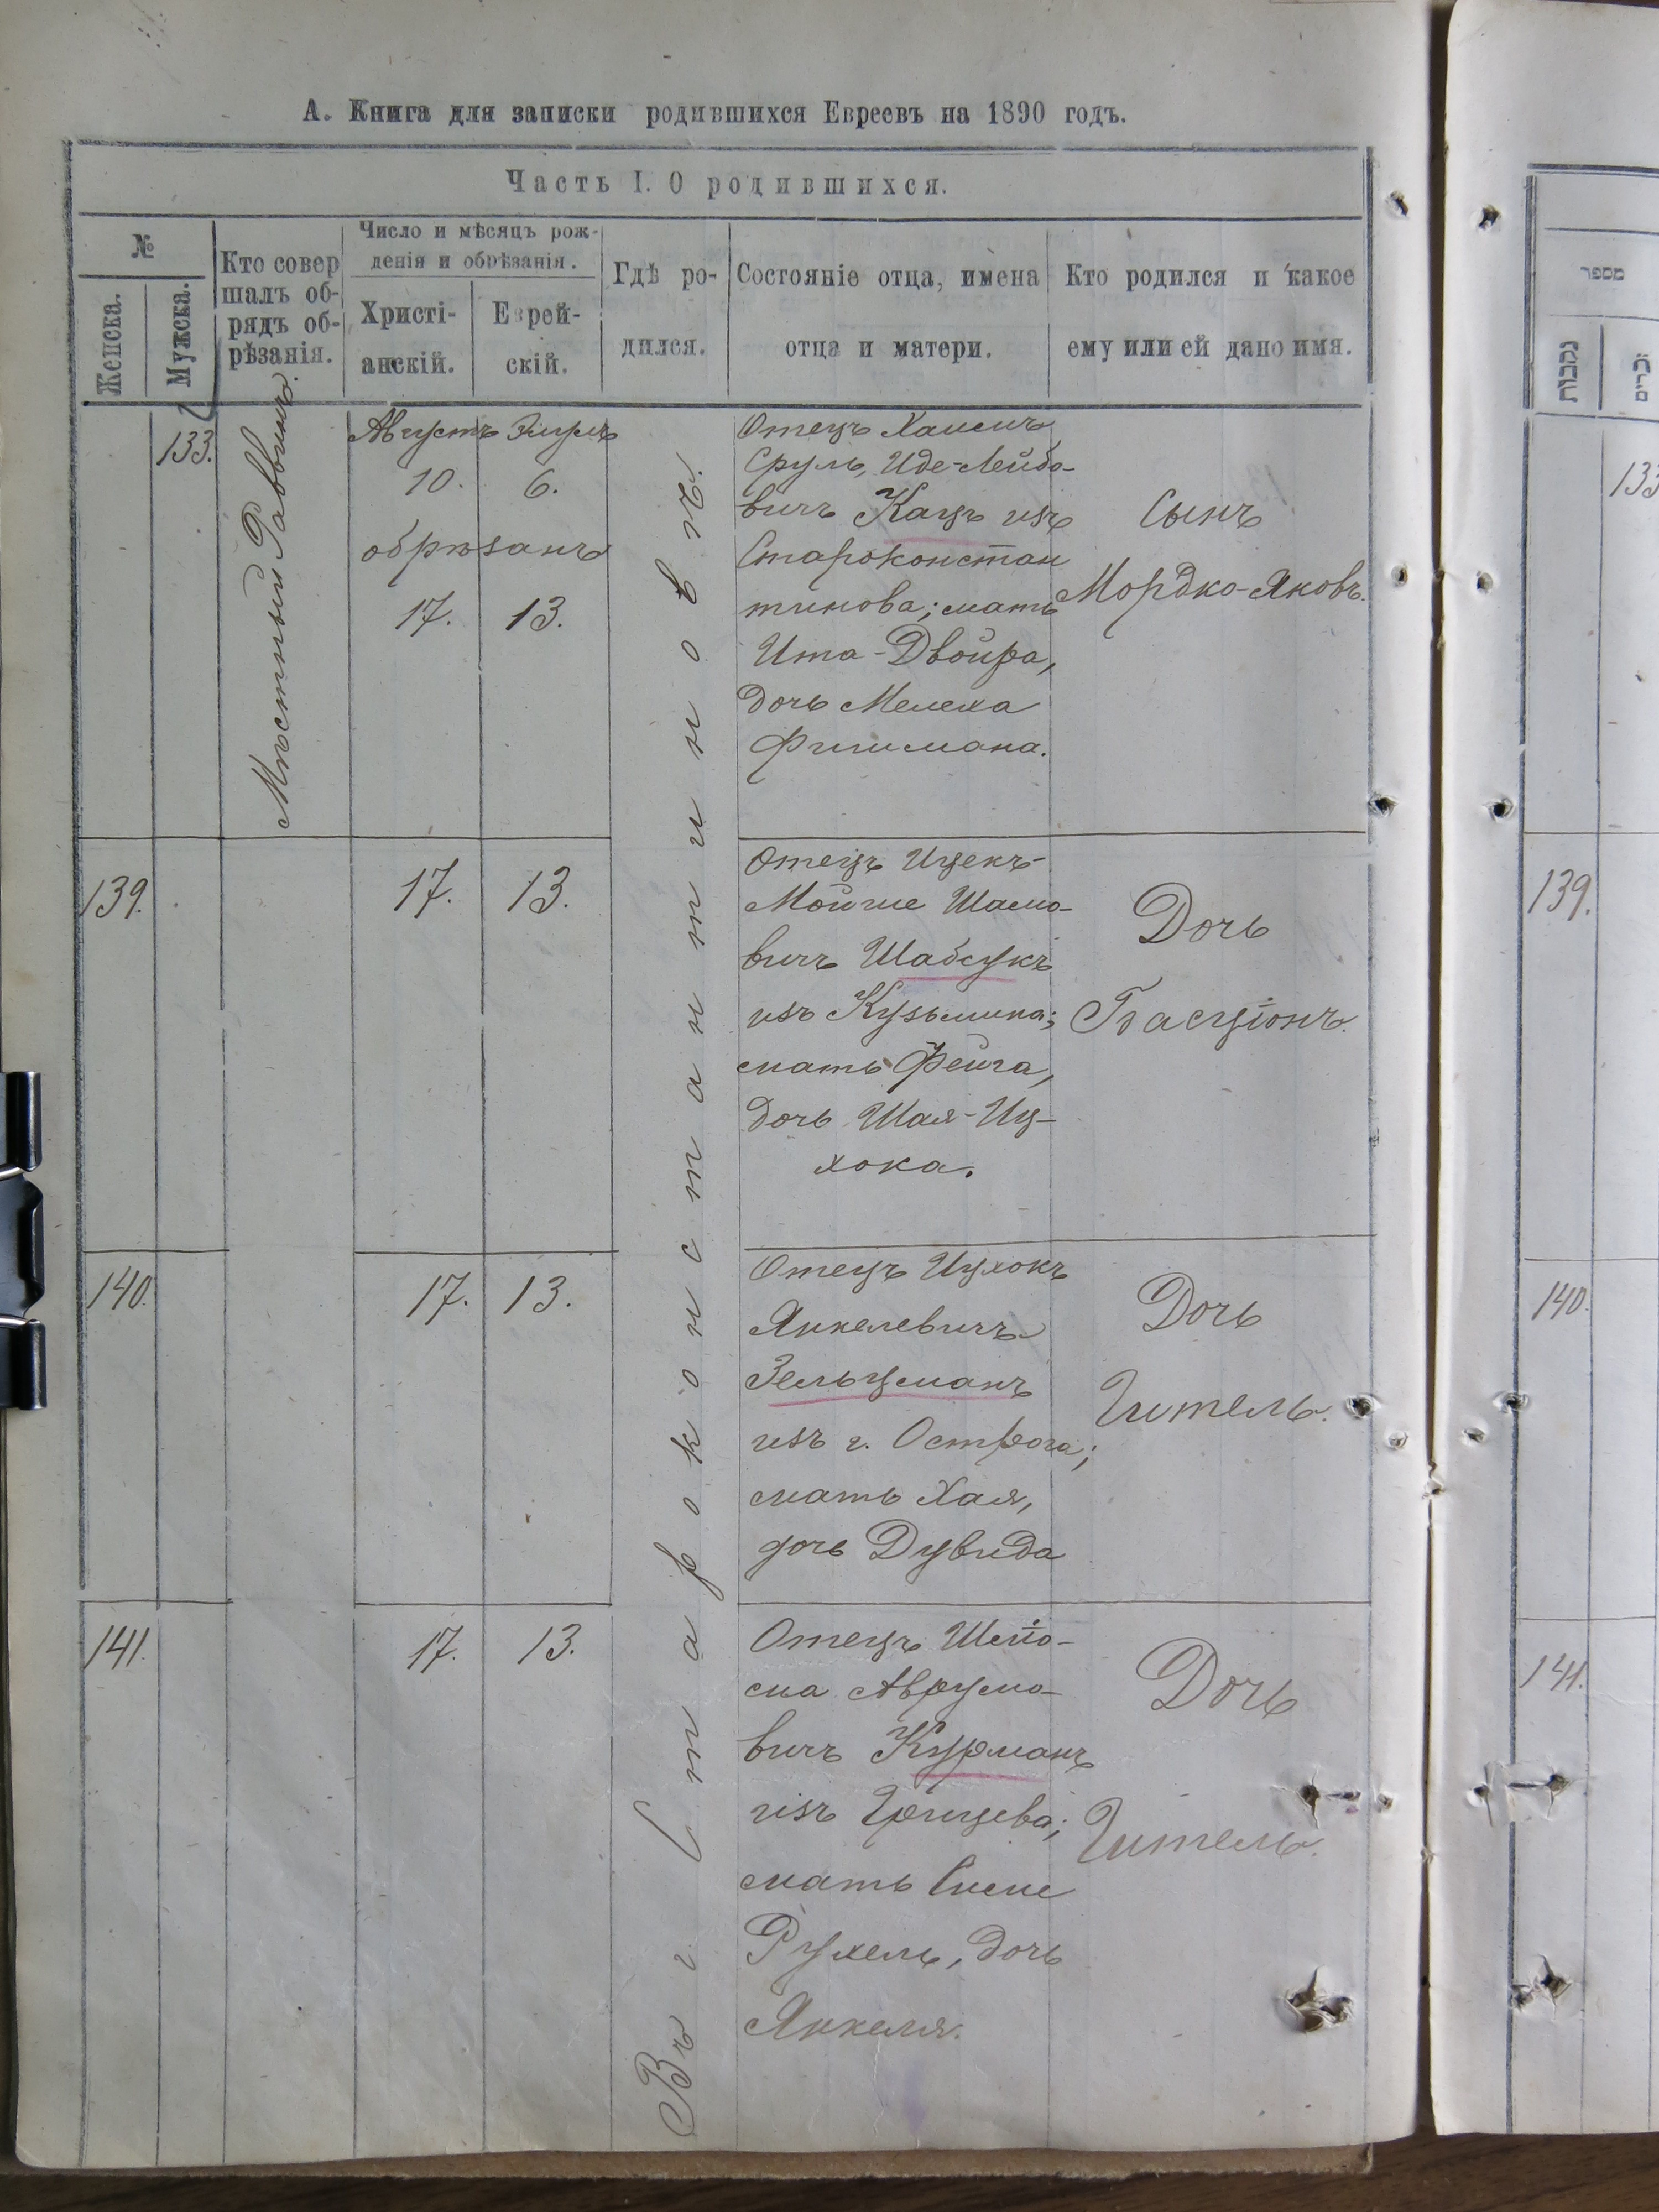 А. Книга для записки родившихся Евреевъ на 1890 годъ.
Часть I. О родившихся.
№
Женска.
Мужска.
Кто совер
шалъ об-
рядъ об-
рѣзанія.
Число и мѣсяцъ рож-
денія и обрѣзанія.
Христі-
анскій.
Еврей-
скій.
Гдѣ ро-
дился.
Состояніе отца, имена
отца и матери.
Кто родился и какое
ему или ей дано имя.
133.
Мѣстный Раввинъ.
Августъ Элулъ
10. 6.
обрѣзанъ
17. 13.
Въ г. Староконстантиновѣ.
Отецъ Хаимъ
Сруль, Иде-Лейбо-
вичъ Кацъ изъ
Староконстан
тинова; мать
Ита-Двойра,
дочь Мелеха
Фишмана.
Сынъ
Мордко-Яковъ.
139.
17. 13.
Отецъ Ицекъ-
Мойше Шамо-
вичъ Шабсукъ
изъ Кузьмина;
мать Фейга,
дочь Шая-Иц-
хока.
Дочь
Басціонъ.
140.
17. 13.
Отецъ Ицхокъ
Янкелевичъ
Зельцманъ
изъ г. Острога;
мать Хая,
дочь Дувида
Дочь
Гитель.
141.
17. 13.
Отецъ
Аврумо-
вичъ Курманъ
изъ Грицева;
мать
Рухель, дочь
Янкеля.
Дочь
Гитель.
מספר
נקבות
זכרים
133
139.
140.
141.